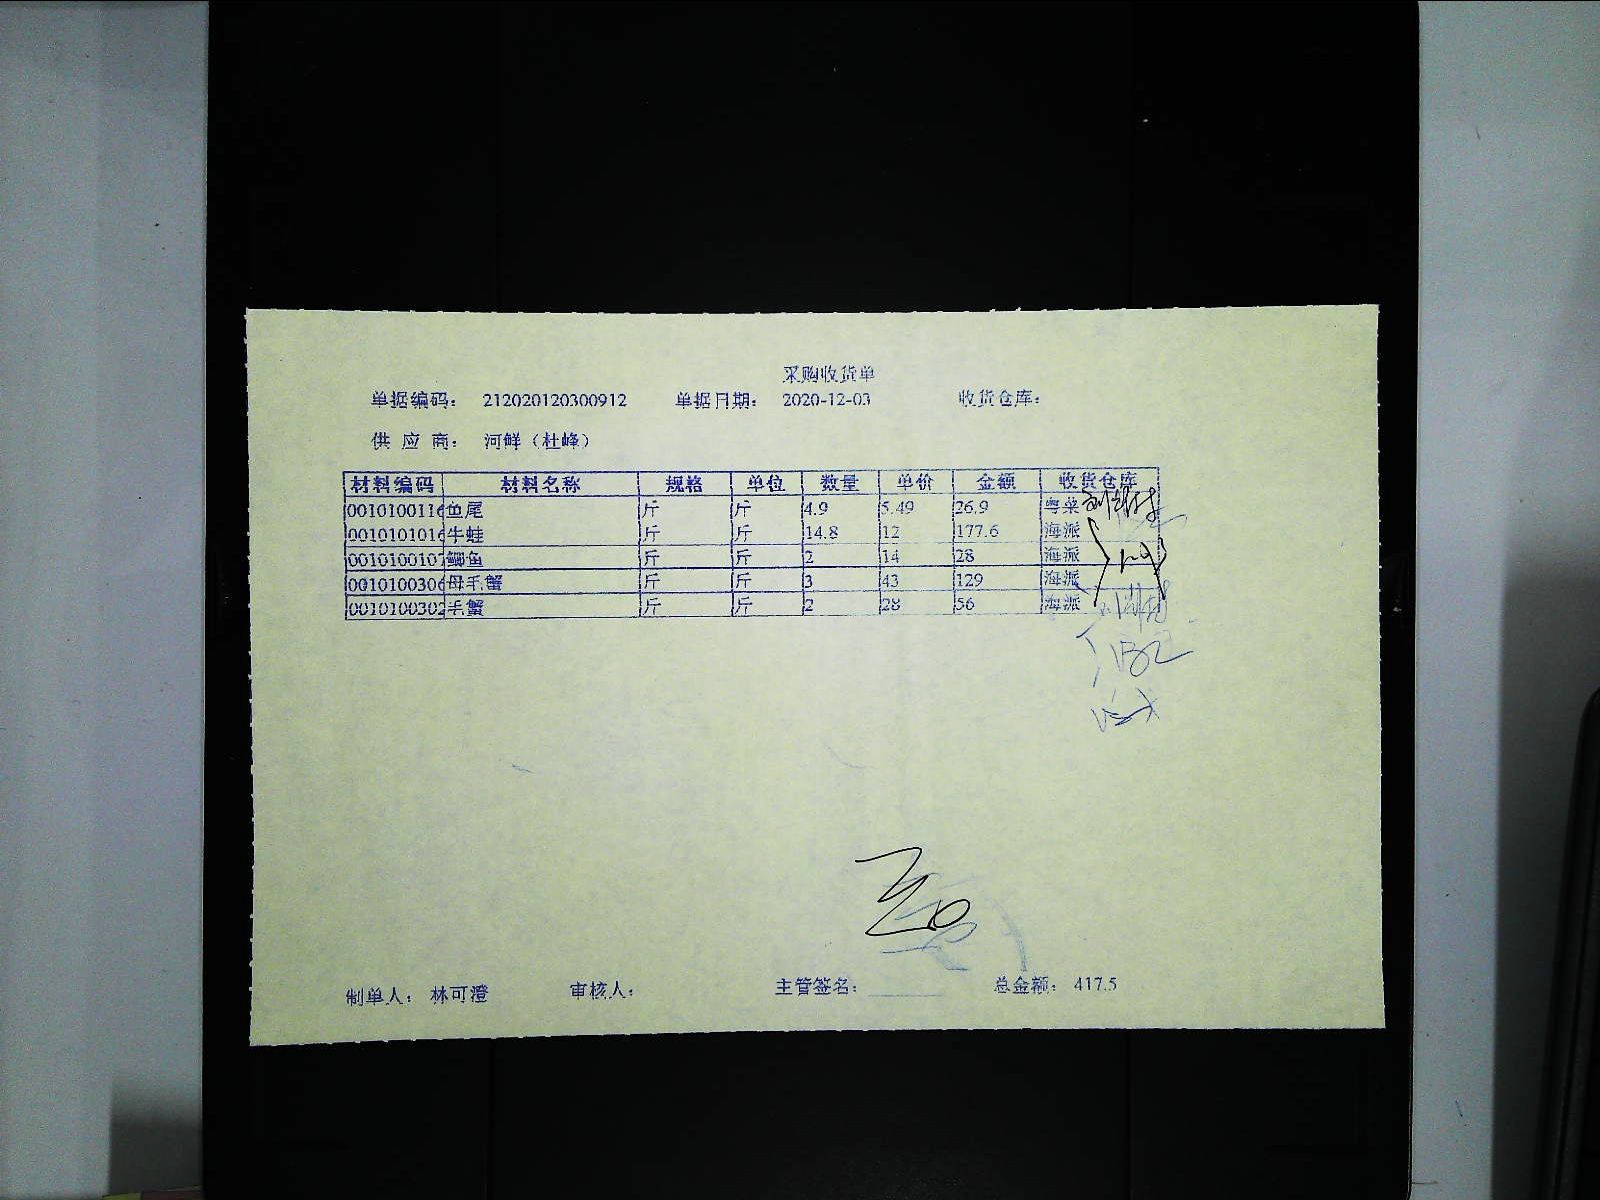 采购收货单
单据编码： 212020120300912 单据日期： 2020-12-03 收货仓库：
供 应 商： 河鲜（杜峰）
材料编码 材料名称 规格 单位 数量 单价 金额 收货仓库
0010100116 鱼尾 斤 斤 4.9 5.49 26.9 粤菜
0010101016 牛蛙 斤 斤 14.8 12 177.6 海派
0010100107 鲫鱼 斤 斤 2 14 28 海派
0010100306 母毛蟹 斤 斤 3 43 129 海派
0010100302 毛蟹 斤 斤 2 28 56 海派
制单人： 林可澄 审核人： 主管签名： 总金额： 417.5